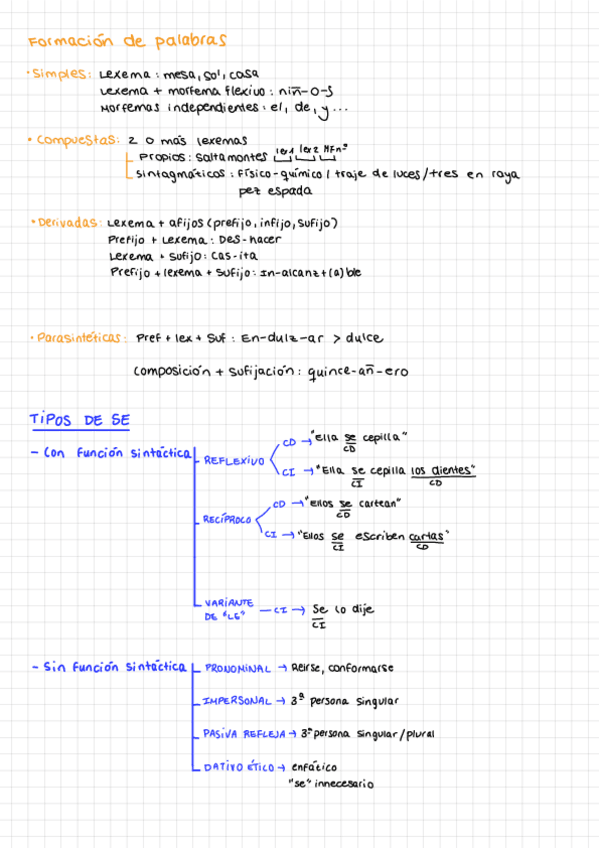 Formación de palabras
· Simples: Lexema: mesa, sol, casa
Lexema + morfema flexivo: niñ-o-s
Morfemas independientes: el, de, y ...
· Compuestas: 2 o más lexemas
Propios: saltamontes lex1 lex2 MFnº
Sintagmáticos: Físico-químico / traje de luces / tres en raya
pez espada
· Derivadas: Lexema + afijos (prefijo, infijo, sufijo)
Prefijo + Lexema: Des-hacer
Lexema + sufijo: cas-ita
Prefijo + lexema + sufijo: in-alcanz+(a)ble
· Parasintéticas: Pref + lex + suf: En-dulz-ar > dulce
Composición + sufijación: quince-añ-ero
TIPOS DE SE
- Con función sintáctica
REFLEXIVO
CD → "Ella se cepilla"
CD
CI → "Ella se cepilla los dientes"
CI CD
RECÍPROCO
CD → "Ellos se cartean"
CD
CI → "Ellos se escriben cartas"
CI CD
VARIANTE DE "LE" - CI → Se lo dije
CI
- Sin función sintáctica
PRONOMINAL → Reirse, conformarse
IMPERSONAL → 3ª persona singular
PASIVA REFLEJA → 3ª persona singular/plural
DATIVO ÉTICO → enfático
"se" innecesario